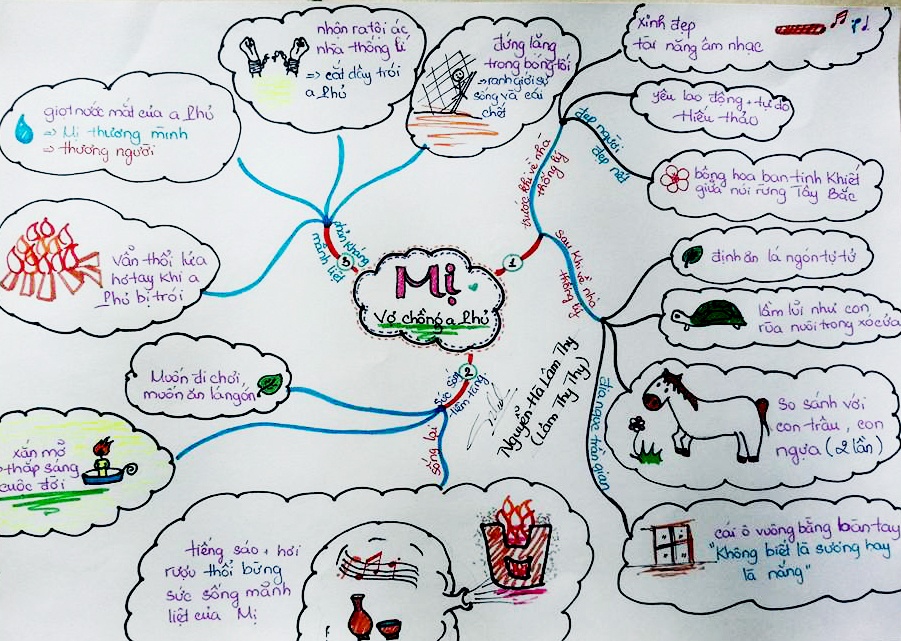 Mị
Vợ chồng a Phủ
1
trước khi về nhà
thống lý
đẹp người
đẹp nết
xinh đẹp
tài năng âm nhạc
yêu lao động + tự do
Hiếu thảo
bông hoa ban tinh khiết
giữa núi rừng Tây Bắc
sau khi về nhà
thống lý
định ăn lá ngón tự tử
lầm lũi như con
rùa nuôi trong xó cửa
So sánh với
con trâu, con
ngựa (2 lần)
địa ngục trần gian
cái ô vuông bằng bàn tay
"Không biết là sương hay
là nắng"
2
sức sống
tiềm tàng
Muốn đi chơi
muốn ăn lá ngón
xắn mỡ
thắp sáng
cuộc đời
sống lại
tiếng sáo + hơi
rượu thổi bừng
sức sống mãnh
liệt của Mị
3
phản kháng
mãnh liệt
vẫn thổi lửa
hơ tay khi a
Phủ bị trói
giọt nước mắt của a Phủ
⇒ Mị thương mình
⇒ thương người
nhận ra tội ác
nhà thống lí
⇒ cắt dây trói
a Phủ
đứng lặng
trong bóng tối
→ ranh giới sự
sống và cái
chết
Nguyễn Hà Lâm Thy
(Lâm Thy Thy)